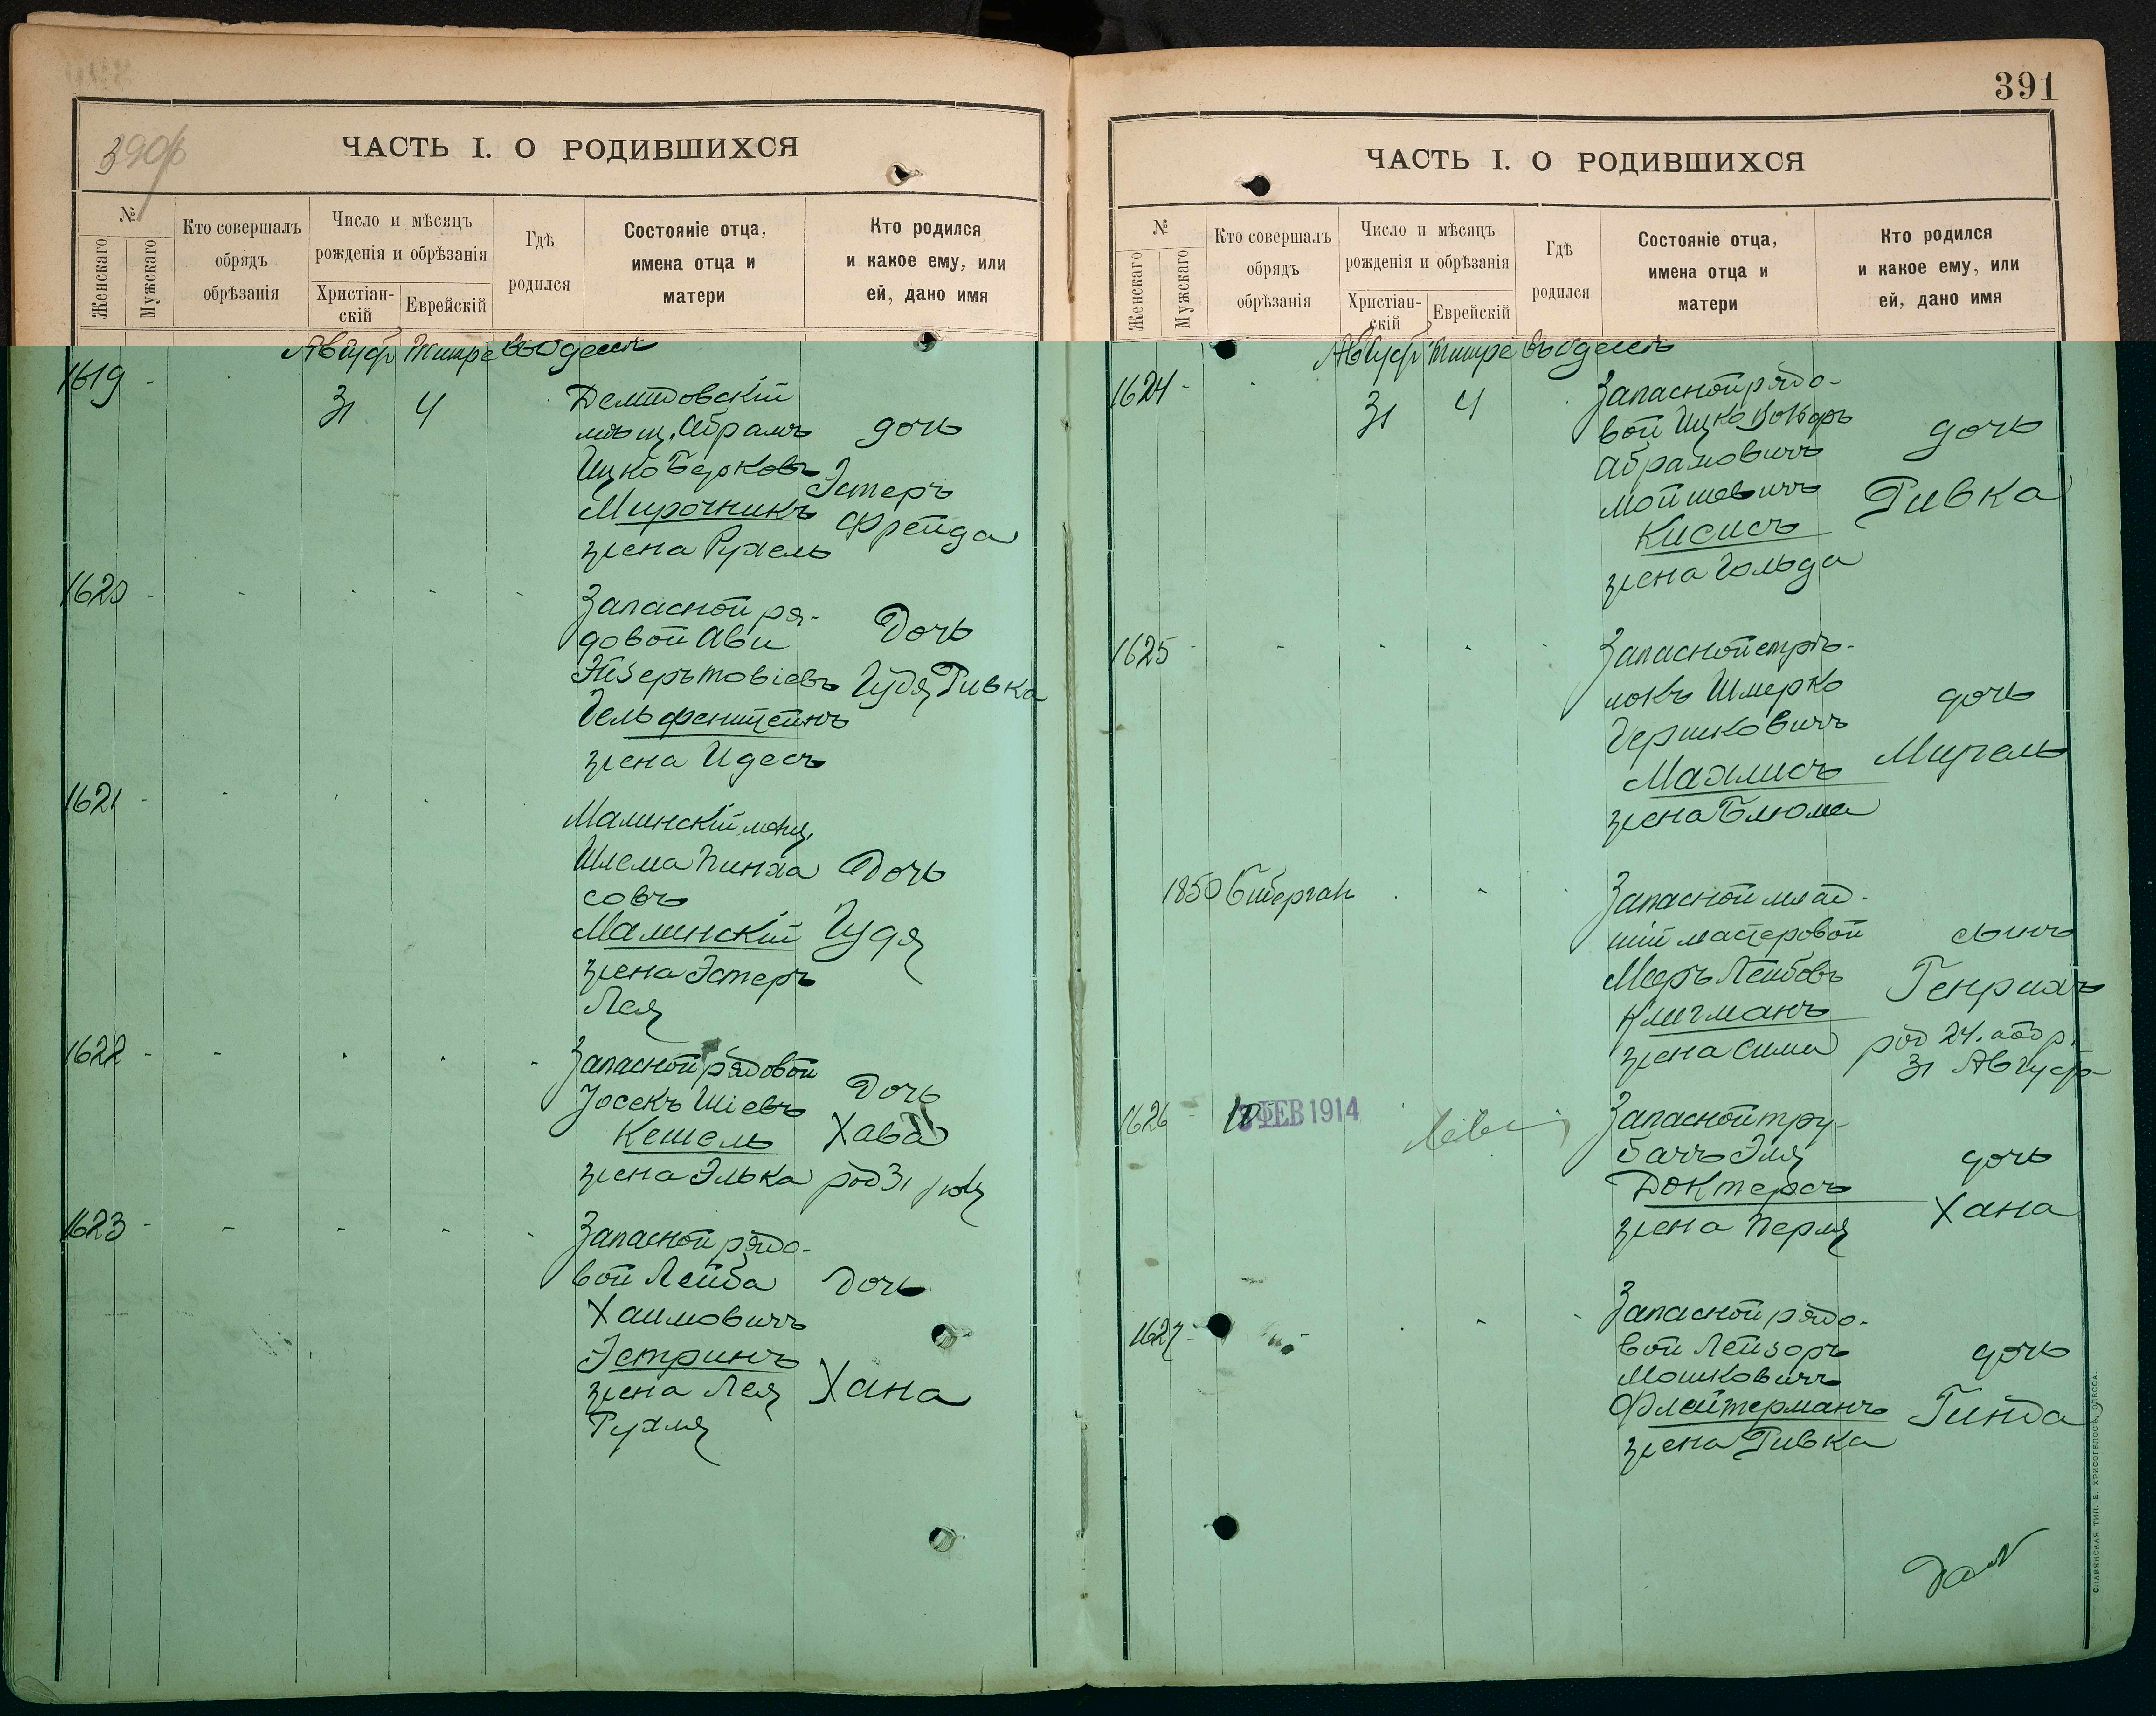 390б
ЧАСТЬ I. О РОДИВШИХСЯ
№
Женскаго
Мужскаго
Кто совершалъ
обрядъ
обрѣзанія
Число и мѣсяцъ
рожденія и обрѣзанія
Христіан-
скій
Еврейскій
Гдѣ
родился
Состояніе отца,
имена отца и
матери
Кто родился
и какое ему, или
ей, дано имя
Августъ Тишре въ Одессѣ
1619
31 4
мѣщ. Абрамъ
Ицко Берковъ
Мирочникъ
жена Рухель
дочь
Эстеръ
Фрейда
1620
Запасной ря-
довой Ави
Гельфенштейнъ
жена Идесъ
Дочь
Гудя Ривка
1621
Малинскій мѣщ.
Шлема Пинха
совъ
Малинскій
жена Эстеръ
Лея
Дочь
Гудя
1622
Запасной рядовой
Іосекъ Шіевъ
Кешель
жена Элька
Дочь
Хава
род 31 іюля
1623
Запасной рядо-
вой Лейба
Хаимовичъ
Эстринъ
жена Лея
Рухля
Дочь
Хана
391
ЧАСТЬ I. О РОДИВШИХСЯ
№
Женскаго
Мужскаго
Кто совершалъ
обрядъ
обрѣзанія
Число и мѣсяцъ
рожденія и обрѣзанія
Христіан-
скій
Еврейскій
Гдѣ
родился
Состояніе отца,
имена отца и
матери
Кто родился
и какое ему, или
ей, дано имя
Августъ Тишре въ Одессѣ
1624
31 4
Запасной рядо-
вой Ицко
Абрамовичъ
Мойшевичъ
Кисисъ
жена Гольда
дочь
Ривка
1625
Запасной стрѣ-
локъ Шмерко
Гершковичъ
Махлисъ
жена Блюма
дочь
Мирель
1850 Биберган
Запасной млад-
шій мастеровой
Мееръ Лейбовъ
Клигманъ
жена Сима
сынъ
Генрихъ
род 24. обр.
31 Августа
1626
ФЕВ 1914
Запасной тру-
бачъ Эля
Доктерсъ
жена Перля
дочь
Хана
1627
Запасной рядо-
вой Лейзоръ
Мошковичъ
Флейтерманъ
жена Ривка
дочь
Гинда
СЛАВЯНСКАЯ ТИП. Е. ХРИСОГЕЛОСЪ, ОДЕССА.